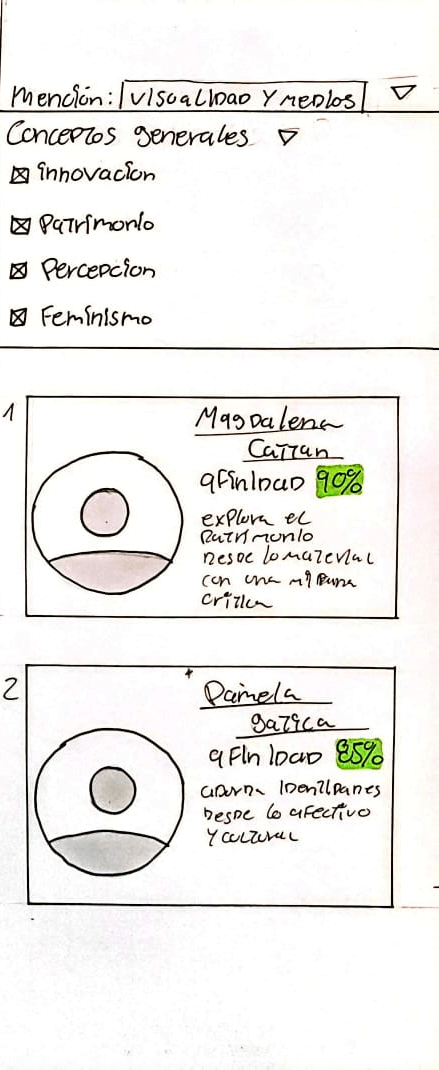 Mención: visualidad y medios
Conceptos generales
innovacion
Patrimonio
Percepcion
Feminismo
1
Magdalena
Cattan
afinidad 90%
explora el
patrimonio
desde lo material
con una mirada
critica
2
Pamela
gatica
afinidad 85%
aborda identidades
desde lo afectivo
y cultural